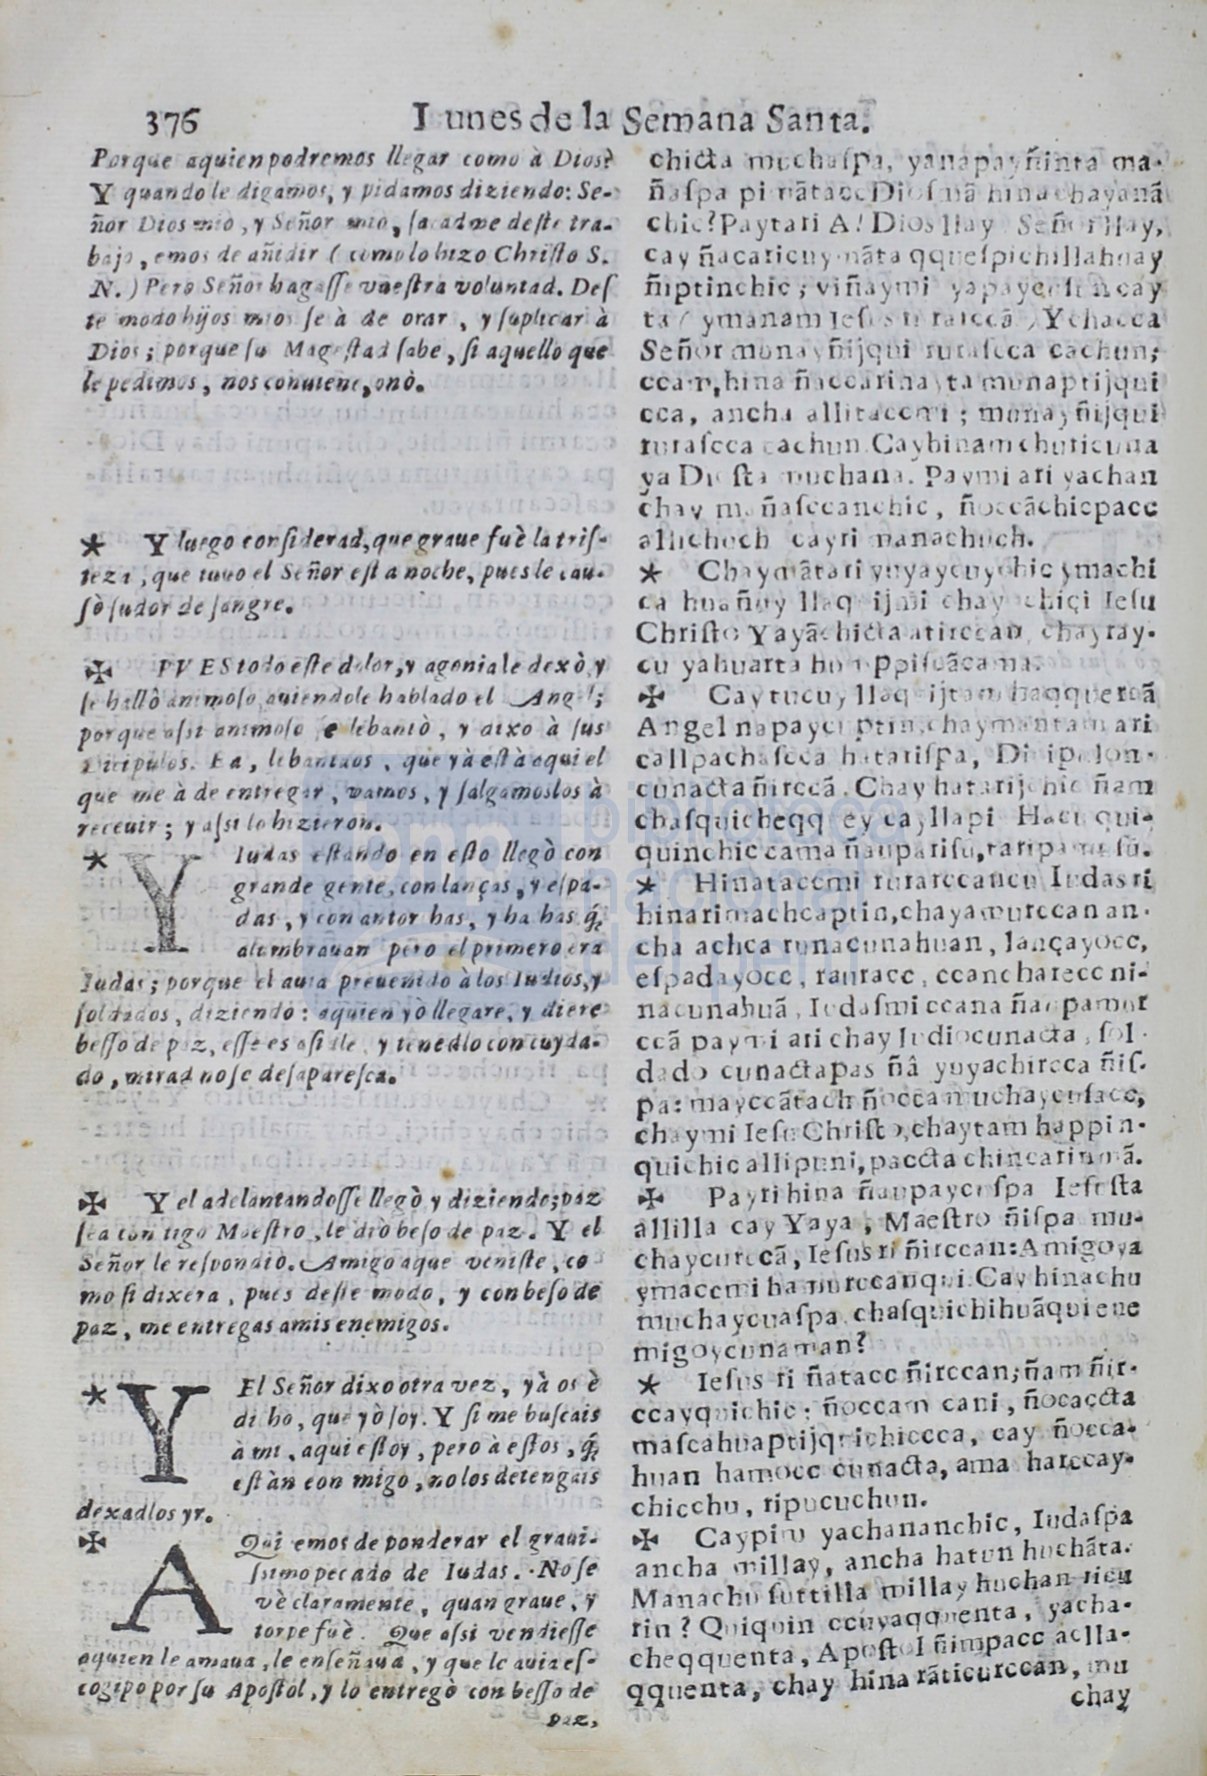 376 Lunes de la Semana Santa.
Porque aquien podremos llegar como à Dios?
Y quando le digamos, y pidamos diziendo: Se-
ñor Dios mio, y Señor mio, sacadme deste tra-
bajo, emos de añidir ( como lo hizo Christo S.
N.) Pero Señor hagasse vuestra voluntad. Des
te modo hijos mios se à de orar, y suplicar à
Dios; porque su Magestad sabe, si aquello que
le pedimos, nos conuiene, onò.
* Y luego considerad, que graue fuè la tris-
teza, que tuuo el Señor esta noche, pues le cau-
sò sudor de sangre.
✠ PVES todo este dolor, y agonia le dexò, y
se hallò animoso, auiendole hablado el Angel;
porque assi animoso se lebantò, y dixo à sus
Dicipulos. Ea, lebantaos, que yà està aqui el
que me à de entregar, vamos, y salgamoslos à
receuir; y assi lo hizieron.
* Y Iudas estando en esto llegò con
grande gente, con lanças, y espa-
das, y con antorchas, y ha has q̃
alumbrauan pero el primero era
Iudas; porque el auia preuenido à los Iudios, y
soldados, diziendo: aquien yò llegare, y diere
besso de paz, esse es asidle, y tenedlo con cuyda-
do, mirad no se desaparesca.
✠ Y el adelantandosse llegò y diziendo; paz
sea contigo Maestro, le diò beso de paz. Y el
Señor le respondio. Amigo aque veniste, co
mo si dixera, pues deste modo, y con beso de
paz, me entregas amis enemigos.
* Y El Señor dixo otra vez, yà os è
dicho, que yò soy. Y si me buscais
à mi, aqui estoy, pero à estos, q̃
estàn conmigo, no los detengais
dexadlos yr.
✠ AQui emos de ponderar el graui-
ssimo pecado de Iudas. No se
vè claramente, quan graue, y
torpe fuè. Que assi vendiesse
aquien le amaua, le enseñaua, y que le auia es-
cogipo por su Apostol, y lo entregò con besso de
paz,
chicta muchaspa, yanapayñinta ma-
ñaspa pi ñãtacc Diosmã hina chayanã
chic? Paytari A! Dios llay Señor llay,
cay ñacaricuymãta qquespichillahuay
ñiptinchic; viñaymi yapaycusun cay
ta ( ymanam Iesus ri rurccã ) Ychacca
Señor munayñijqui rurascca cachun;
ccam, hina ñaccarinayta munaptijqui
cca, ancha allitaccmi; munayñijqui
rurascca cachun. Cayhinam churicuna
ya Diosta muchana. Paymi ari yachan
chay mañasccanchic, ñoccãchicpacc
allichuch cayri manachuch.
* Chaymãtari yuyaycuychic ymachi
ca huañuy llaquijmi chay chiçi Iesu
Christo Yayãchicta atirccan, chayray-
cu yahuarta humppiscãcama.
✠ Cay tucuy llaquijtam haqquercã
Angel napaycuptin, chaymantam ari
callpachascca hatarispa, Dicipolon-
cunacta ñirccã. Chay hatarijchic ñam
chasquicheqq ey cayllapi Hacu qui-
quinchiccama ñaupatisũ, taripamusũ.
* Hinataccmi rurarccancu Iudas ri
hina rimachcaptin, chayamurccan an-
cha achca runacunahuan, lançayocc,
espadayocc, rauracc, ccancharecc ni-
nacunahuã, Iudasmi ccana ñaupamur
ccã paymi ari chay Iudiocunacta, sol-
dado cunactapas ñâ yuyachircca ñis-
pa: mayccãtach ñocca muchaycusacc,
chaymi Iesu Christo, chaytam happin-
quichic allipuni, paccta chincarinmã.
✠ Payri hina ñaupaycuspa Iesusta
allilla cay Yaya, Maestro ñispa mu-
chaycurccã, Iesus ri ñirccan: Amigoya
ymaccmi hamurccanqui. Cay hinachu
muchaycuaspa chasquichihuãqui ene
migoycunaman?
* Iesus ri ñatacc ñirccan; ñam ñir-
ccayquichic: ñoccam cani, ñocaccta
mascahuaptijquichiccca, cay ñocca-
huan hamocc cunacta, ama harccay-
chicchu, ripucuchun.
✠ Caypim yachananchic, Iudaspa
ancha millay, ancha hatun huchãta.
Manachu suttilla millay huchan ricu
rin? Quiquin ccuyaqquenta, yacha-
cheqquenta, Apostol ñimpacc aclla-
qquenta, chay hina rãticurccan, mu
chay